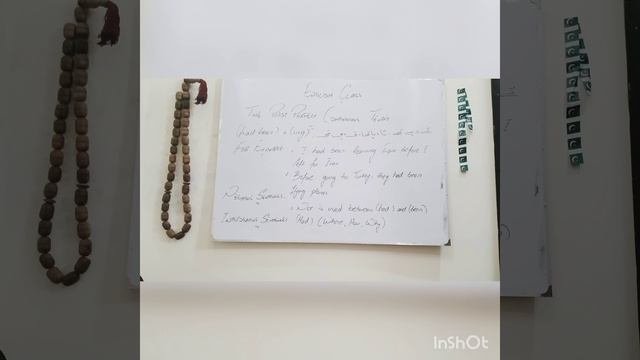 English Class
The Past Perfect Continuous Tense
(had been) + (ing)
For Example: • I had been learning before I
left for Iran
• Before going to Turkey, they had been
flying planes
Negative Sentences: • Not is used between (had) and (been)
Sentences (Had) (Where, How, Why)
InShOt